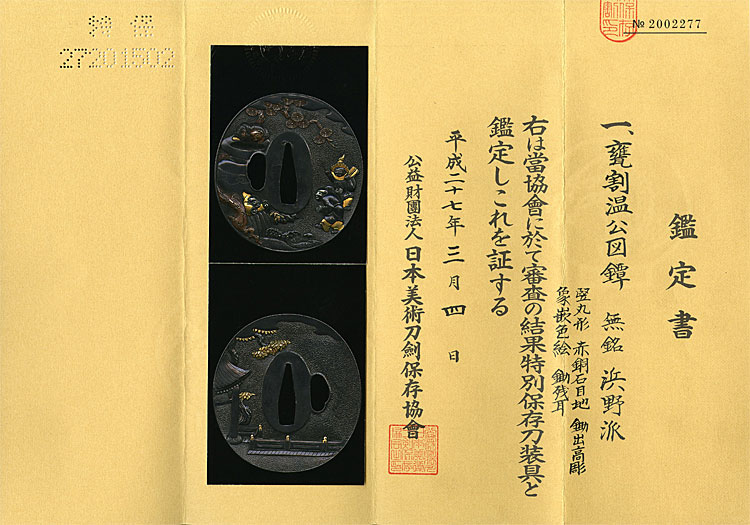 № 2002277
鑑定書
一、甕割温公図鐔 無銘 浜野派
竪丸形 赤銅石目地 鋤出高彫
象嵌色絵 鋤残耳
右は當協會に於て審査の結果特別保存刀装具と
鑑定しこれを証する
平成二十七年三月四日
公益財團法人 日本美術刀劍保存協會
特保
27201502